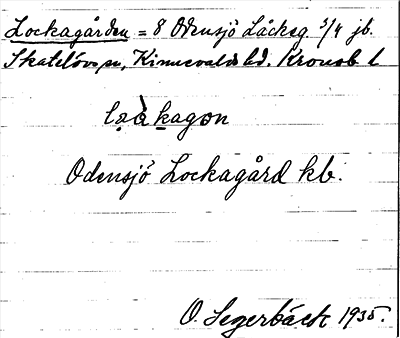 Lockagården = 8 Odensjö Låckeg. 3/4 jb.
Skatelövs sn, Kinnevalds hd. Kronob. l
Odensjö Lockagård kb.
O. Segerbäck 1935.